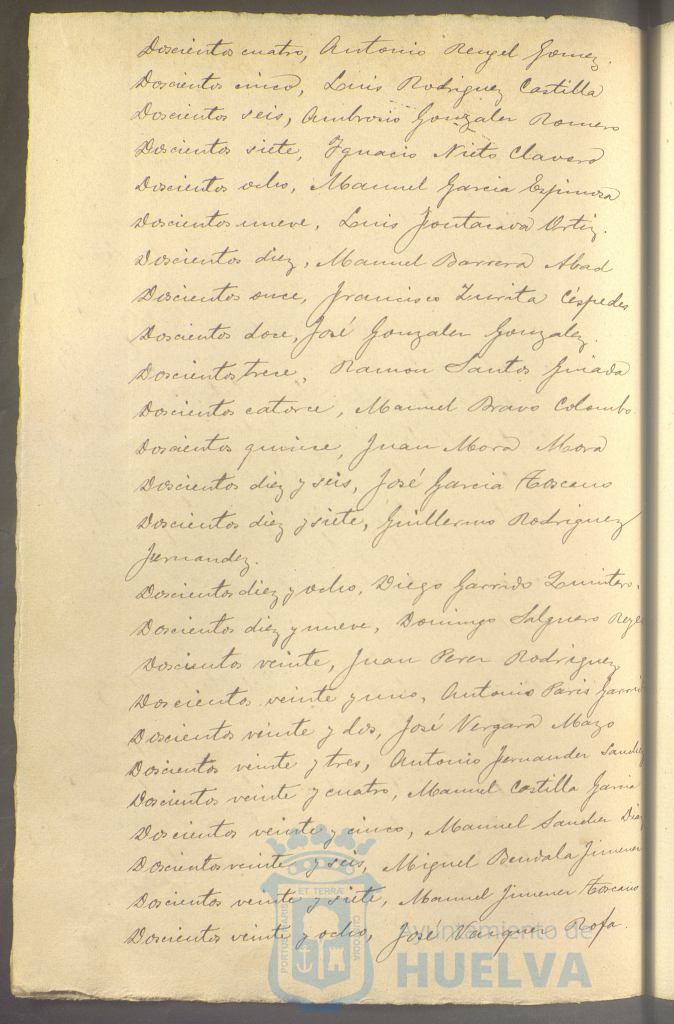 Doscientos cuatro, Antonio Rengel Gomez.
Doscientos cinco, Luis Rodriguez Castilla
Doscientos seis, Ambrosio Gonzalez Romero
Doscientos siete, Ignacio Nieto Clavero
Doscientos ocho, Manuel Garcia Espinosa
Doscientos nueve, Luis Fontacava Ortiz.
Doscientos diez, Manuel Barrera Abad
Doscientos once, Francisco Zurita Céspedes
Doscientos doce, José Gonzalez Gonzalez.
Doscientos trece, Ramon Santos Guiada
Doscientos catorce, Manuel Bravo Colombo.
Doscientos quince, Juan Mora Mora
Doscientos diez y seis, José Garcia Toscano
Doscientos diez y siete, Guillermo Rodriguez
Fernandez.
Doscientos diez y ocho, Diego Garrido Quintero.
Doscientos diez y nueve, Domingo Salguero
Doscientos veinte, Juan Perez Rodriguez
Doscientos veinte y uno, Antonio Paris
Doscientos veinte y dos, José Vergara Mazo
Doscientos veinte y tres, Antonio Fernandez
Doscientos veinte y cuatro, Manuel Castilla Garcia
Doscientos veinte y cinco, Manuel Sanchez
Doscientos veinte y seis, Miguel Bendala Jimenez
Doscientos veinte y siete, Manuel Jimenez Toscano
Doscientos veinte y ocho, José Vazquez Rofa.
PORTUS MARIS ET TERRAE CUSTODIA
Ayuntamiento de
HUELVA